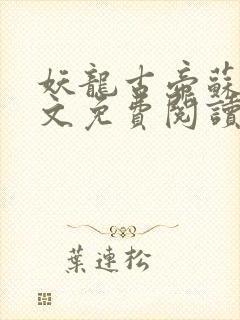 妖龍古帝蘇
文免費閱讀
葉連松